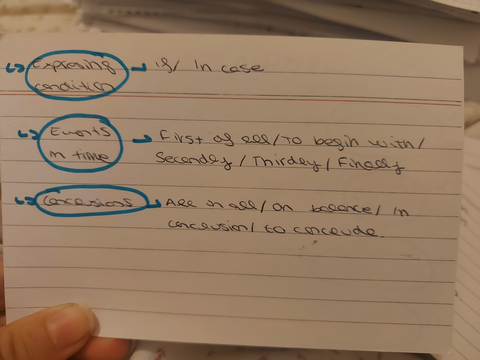 Expressing → if/ In case
condition
Events → First of all/To begin with/
in time Secondly/Thirdly/Finally
Conclusions → All in all/On balance/In
conclusion/to conclude.